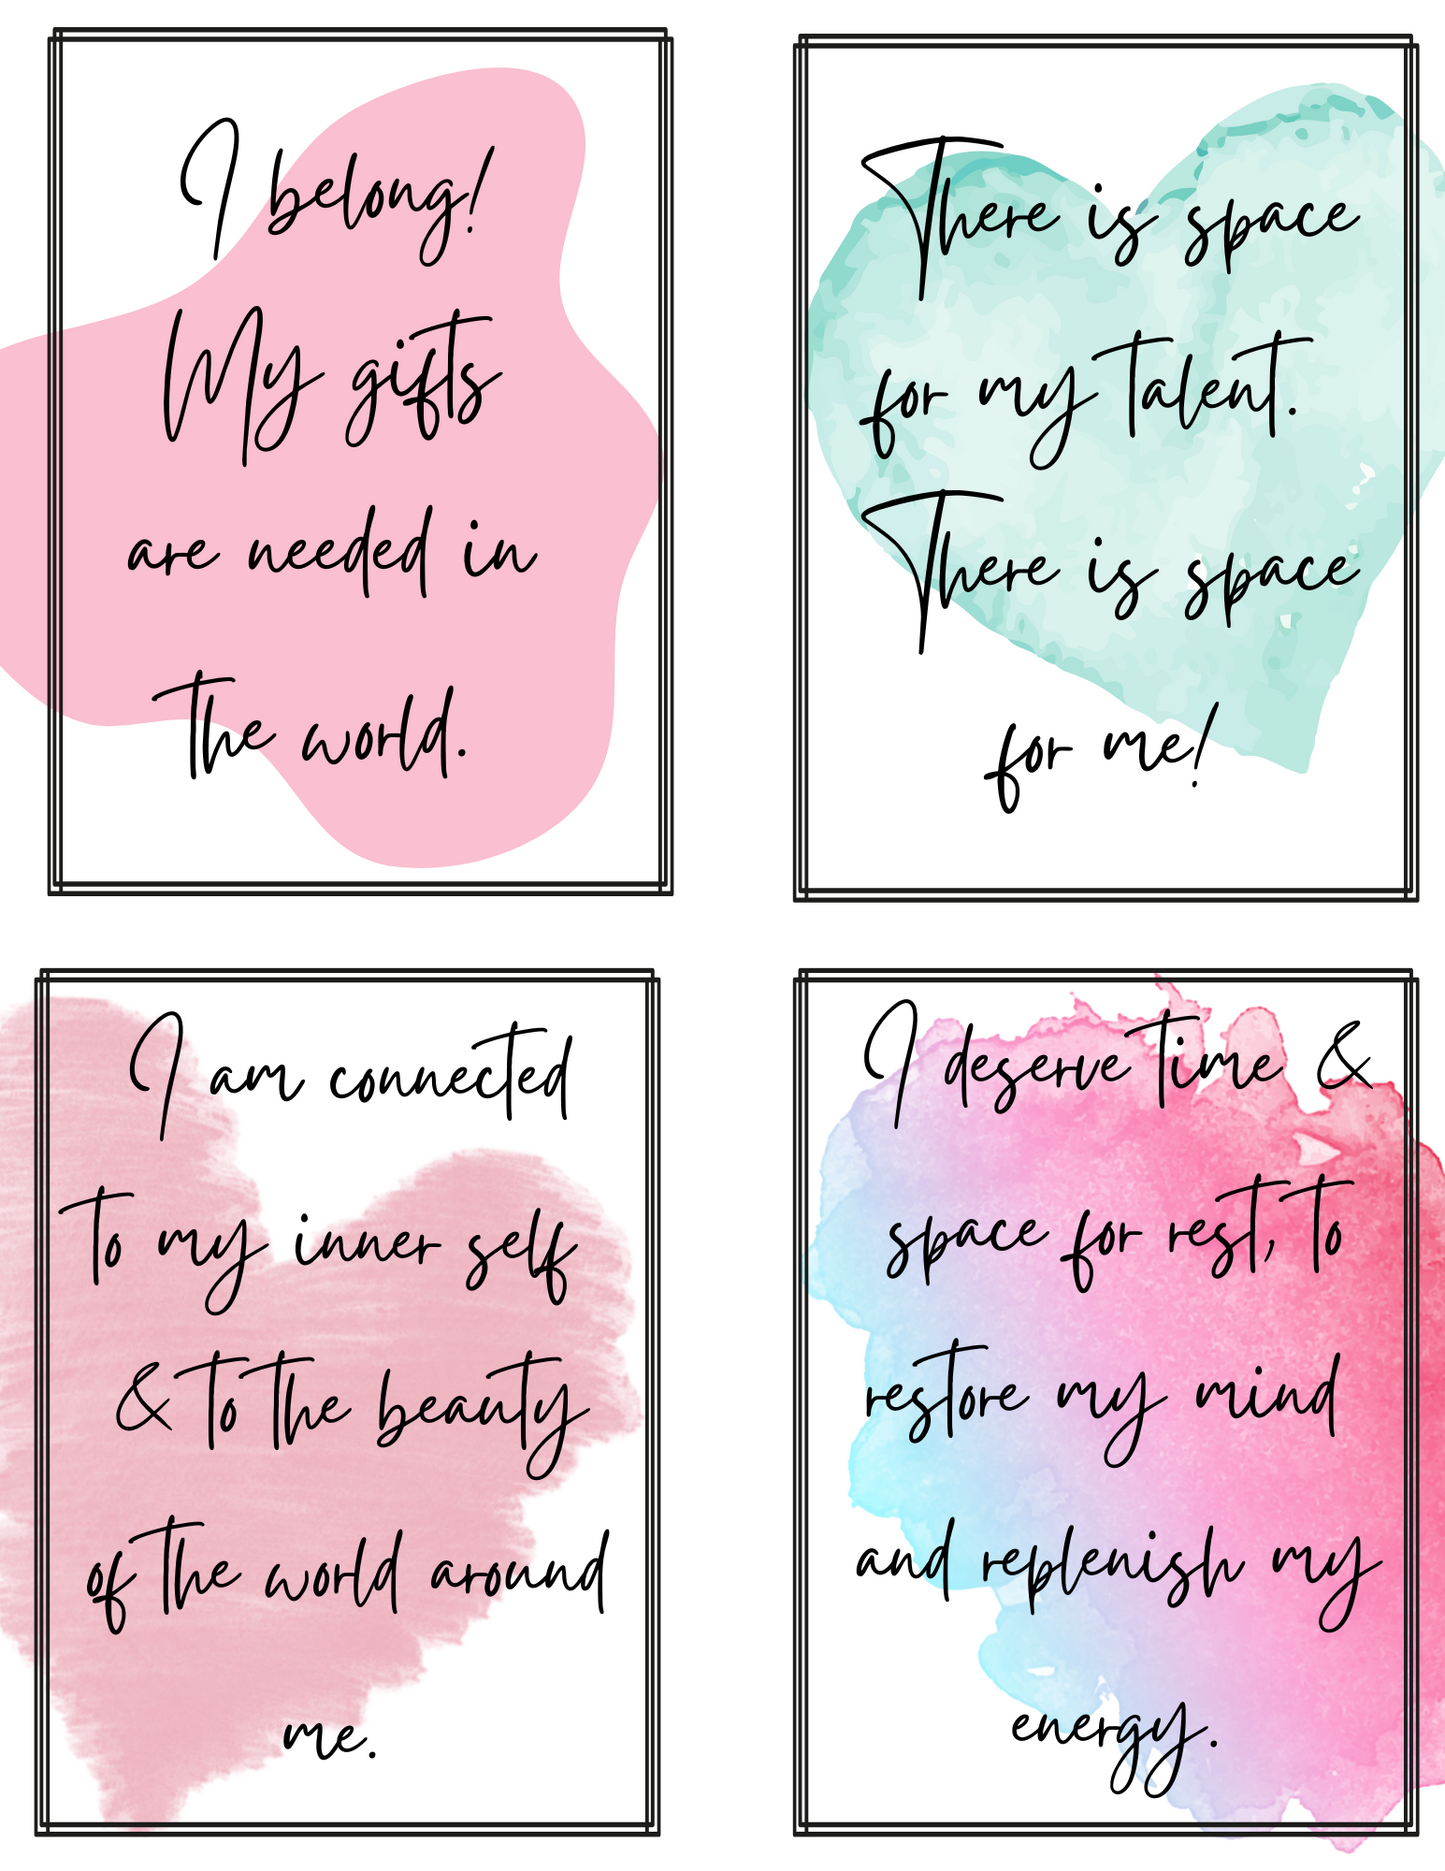 I belong!
My gifts
are needed in
the world.
There is space
for my talent.
There is space
for me!
I am connected
to my inner self
& to the beauty
of the world around
me.
I deserve time &
space for rest, to
restore my mind
and replenish my
energy.